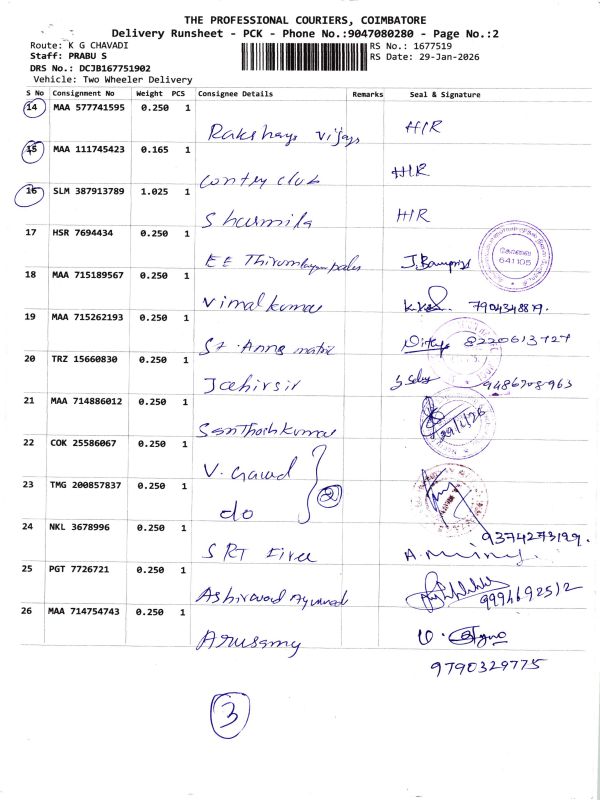 THE PROFESSIONAL COURIERS, COIMBATORE
Delivery Runsheet - PCK - Phone No.:9047080280 - Page No.:2
Route: K G CHAVADI
RS No.: 1677519
Staff: PRABU S
RS Date: 29-Jan-2026
DRS No.: DCJB167751902
Vehicle: Two Wheeler Delivery
S No Consignment No Weight PCS Consignee Details Remarks Seal & Signature
14 MAA 577741595 0.250 1
Rakshays Vijays HIR
15 MAA 111745423 0.165 1
Contry Club HIR
16 SLM 387913789 1.025 1
Sharmila HIR
17 HSR 7694434 0.250 1
EE
கோவை
641105
18 MAA 715189567 0.250 1
Vimal kumar 7904348879.
19 MAA 715262193 0.250 1
St. Anns 8220613727
20 TRZ 15660830 0.250 1
Jahirsir 9486708963
21 MAA 714886012 0.250 1
Santhosh Kumar 29/1/26
22 COK 25586067 0.250 1
V. Gawd
2
23 TMG 200857837 0.250 1
do
9374273199.
24 NKL 3678996 0.250 1
SRT Fire
25 PGT 7726721 0.250 1
Ashirvad Ayurved 9994692512
26 MAA 714754743 0.250 1
Arusamy
9790329775
3